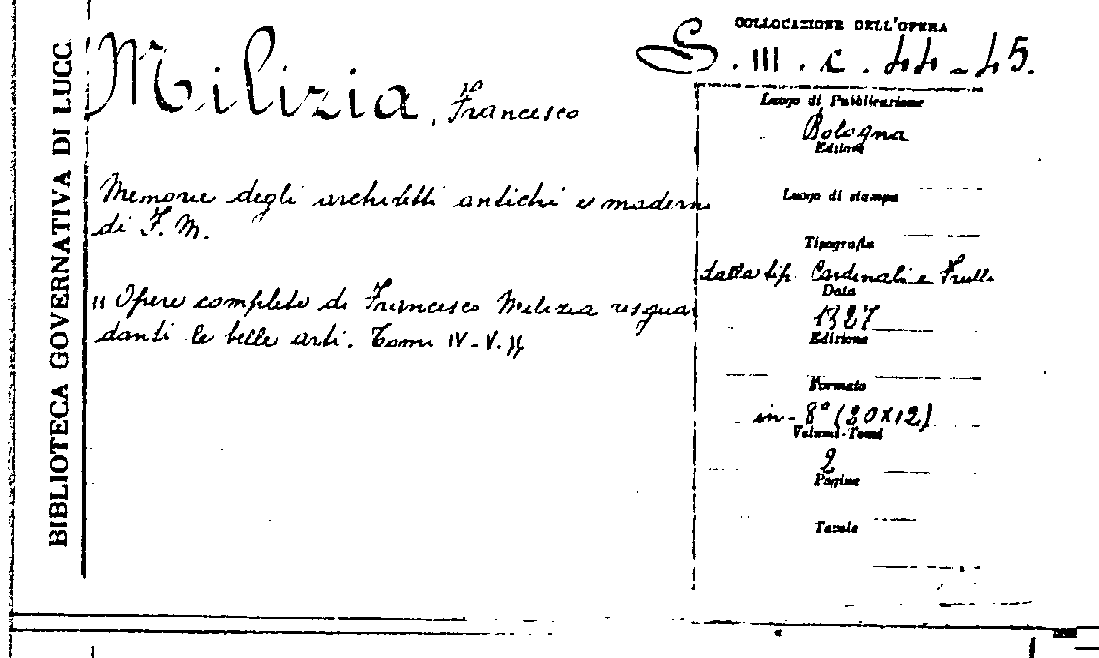 BIBLIOTECA GOVERNATIVA DI LUCC
Milizia, Francesco
Memorie degli architetti antichi e moderni
di F. M.
"Opere complete di Francesco Milizia risguar
danti le belle arti. Tomi IV-V."
COLLOCAZIONE DELL'OPERA
S. III. c. 44-45.
Luogo di Pubblicazione
Bologna
Editore
Luogo di stampa
Tipografia
dalla tip. Cardinali e Frulli
Data
1827
Edizione
Formato
in-8° (20x12)
Volumi-Tomi
2
Pagine
Tavole